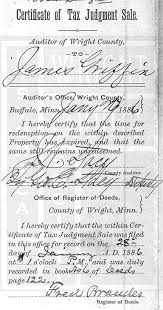 Certificate of Tax Judgment Sale.
Auditor of Wright County,
To
James Griffin
Auditor's Office, Wright County,
Buffalo, Minn. Jany 1886
I hereby certify that the time for
redemption on the within described
Property has expired, and that the
same still remains unredeemed.
By
Office of Register of Deeds,
County of Wright, Minn.
I hereby certify that the within Cer-
tificate of Tax-Judgment Sale was filed
in this office for record on the 28
day of Jany A.D. 1886
at 1 o'clock P.M., and was duly
recorded in Book of Deeds
page 122.
Fred Brandes
Register of Deeds.